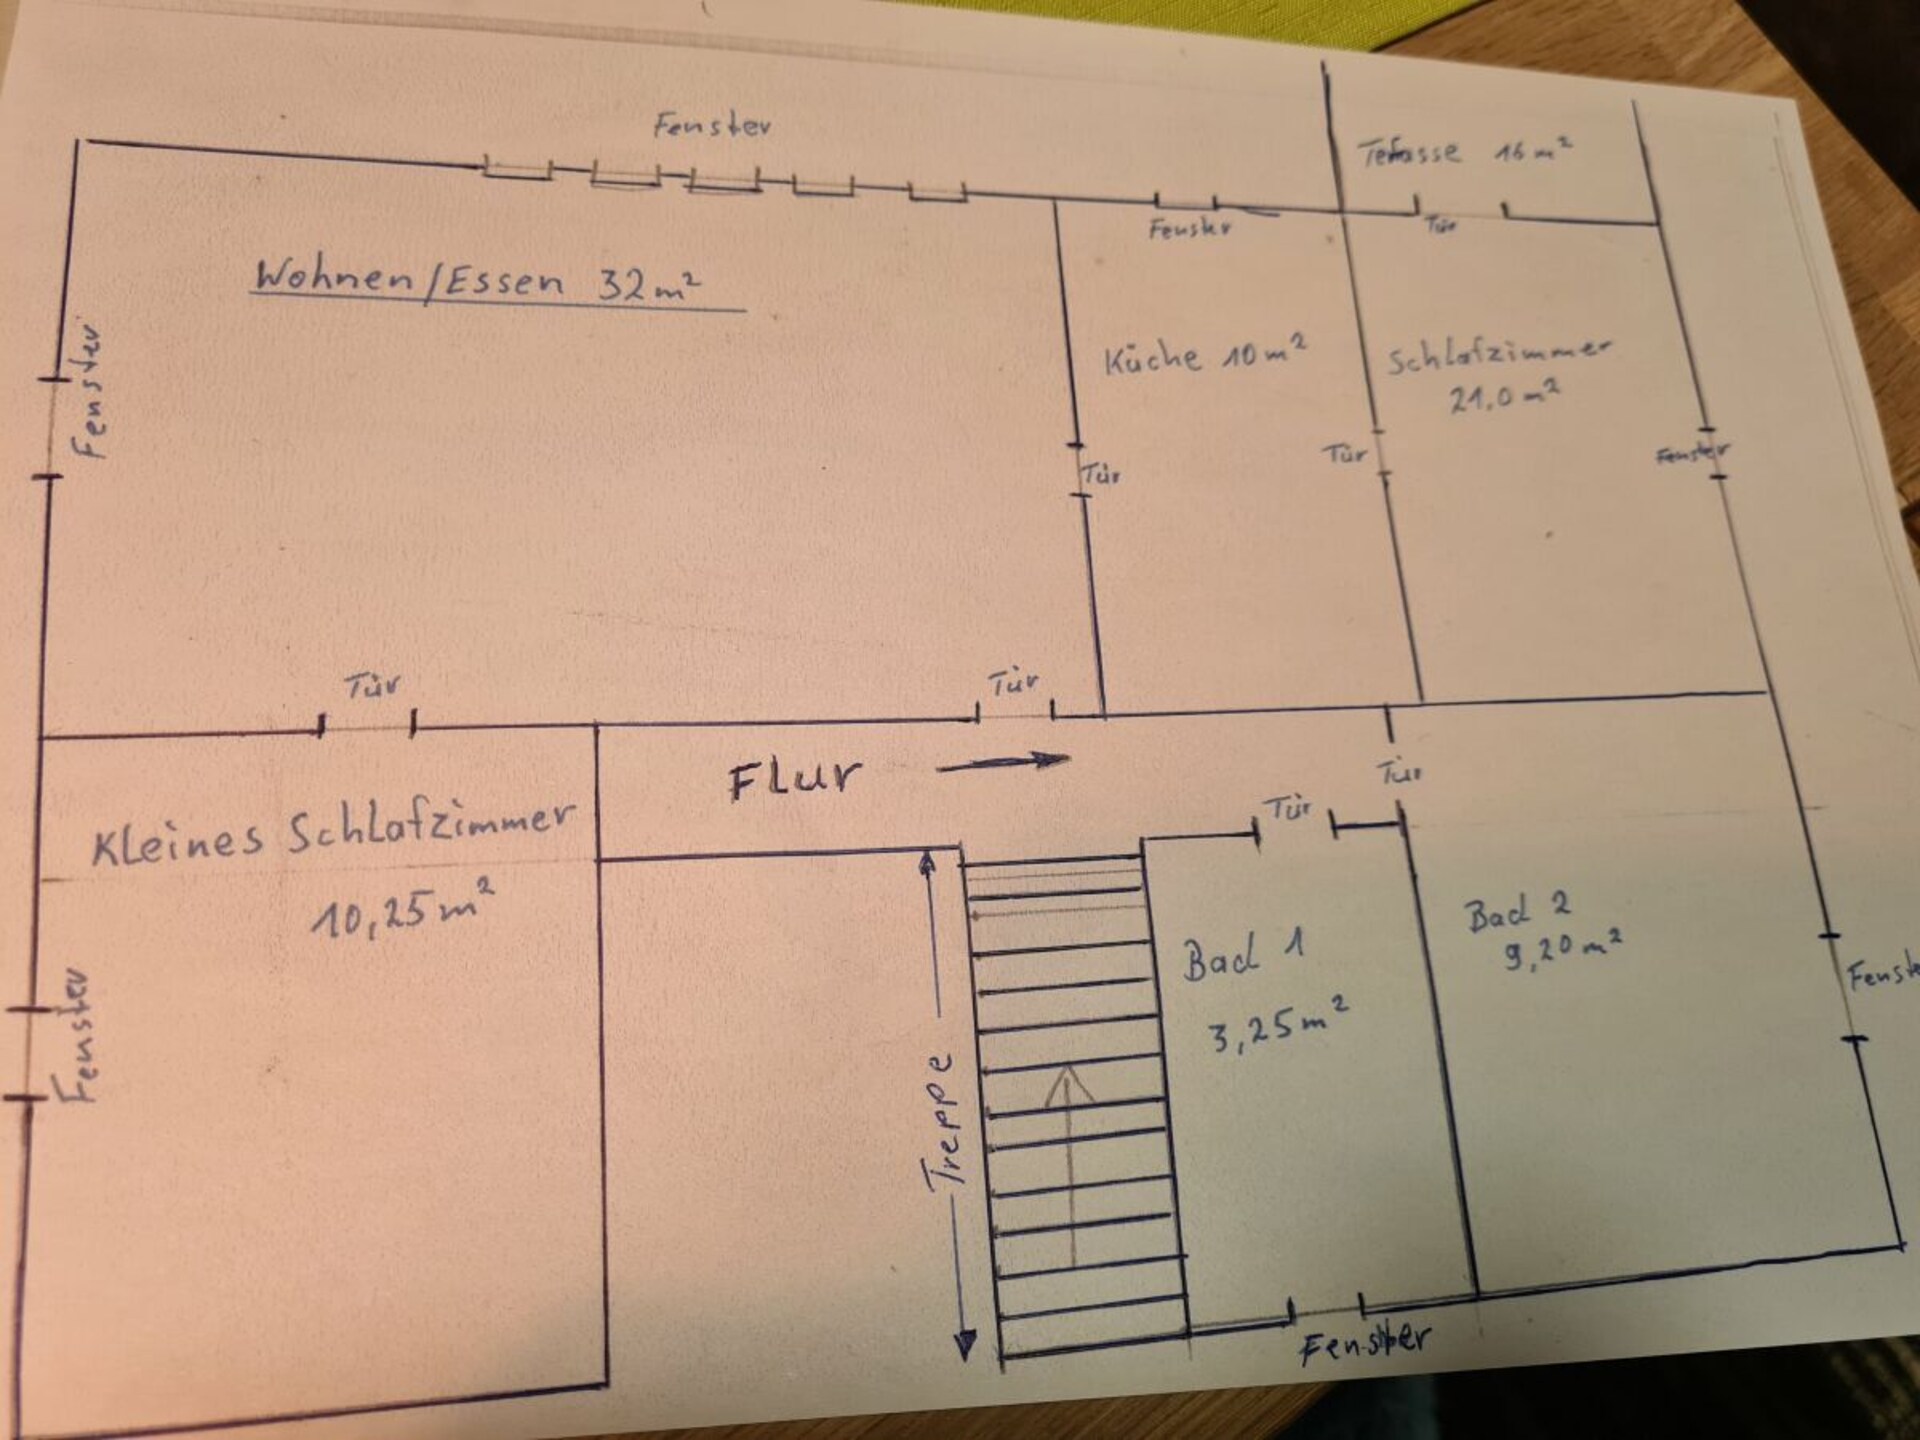 Fenster
Terasse 16 m²
Fenster
Tür
Wohnen/Essen 32m²
Fenster
Küche 10m²
Schlafzimmer
21,0 m²
Tür
Tür
Fenster
Tür
Tür
Flur
Tür
Tür
Kleines Schlafzimmer
10,25m²
Bad 1
3,25m²
Bad 2
9,20m²
Fenster
Treppe
Fenster